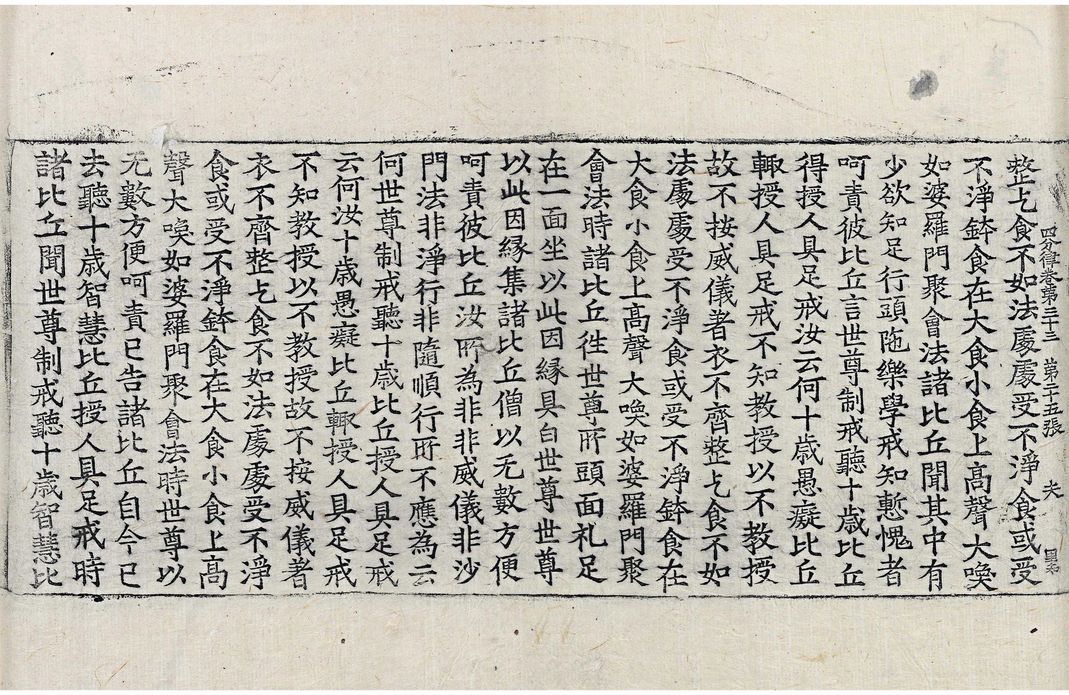 四分律卷第三十三 第二十五張
整乞食不如法處處受不淨食或受
不淨鉢食在大食小食上高聲大喚
如婆羅門聚會法諸比丘聞其中有
少欲知足行頭陁樂學戒知慙愧者
呵責彼比丘言世尊制戒聽十歲比丘
得授人具足戒汝云何十歲愚癡比丘
輙授人具足戒不知教授以不教授
故不按威儀者衣不齊整乞食不如
法處處受不淨食或受不淨鉢食在
大食小食上高聲大喚如婆羅門聚
會法時諸比丘往世尊所頭面礼足
在一面坐以此因緣具白世尊世尊
以此因緣集諸比丘僧以无數方便
呵責彼比丘汝所為非非威儀非沙
門法非淨行非隨順行所不應為云
何世尊制戒聽十歲比丘授人具足戒
云何汝十歲愚癡比丘輙授人具足戒
不知教授以不教授故不按威儀者
衣不齊整乞食不如法處處受不淨
食或受不淨鉢食在大食小食上高
聲大喚如婆羅門聚會法時世尊以
无數方便呵責已告諸比丘自今已
去聽十歲智慧比丘授人具足戒時
諸比丘聞世尊制戒聽十歲智慧比